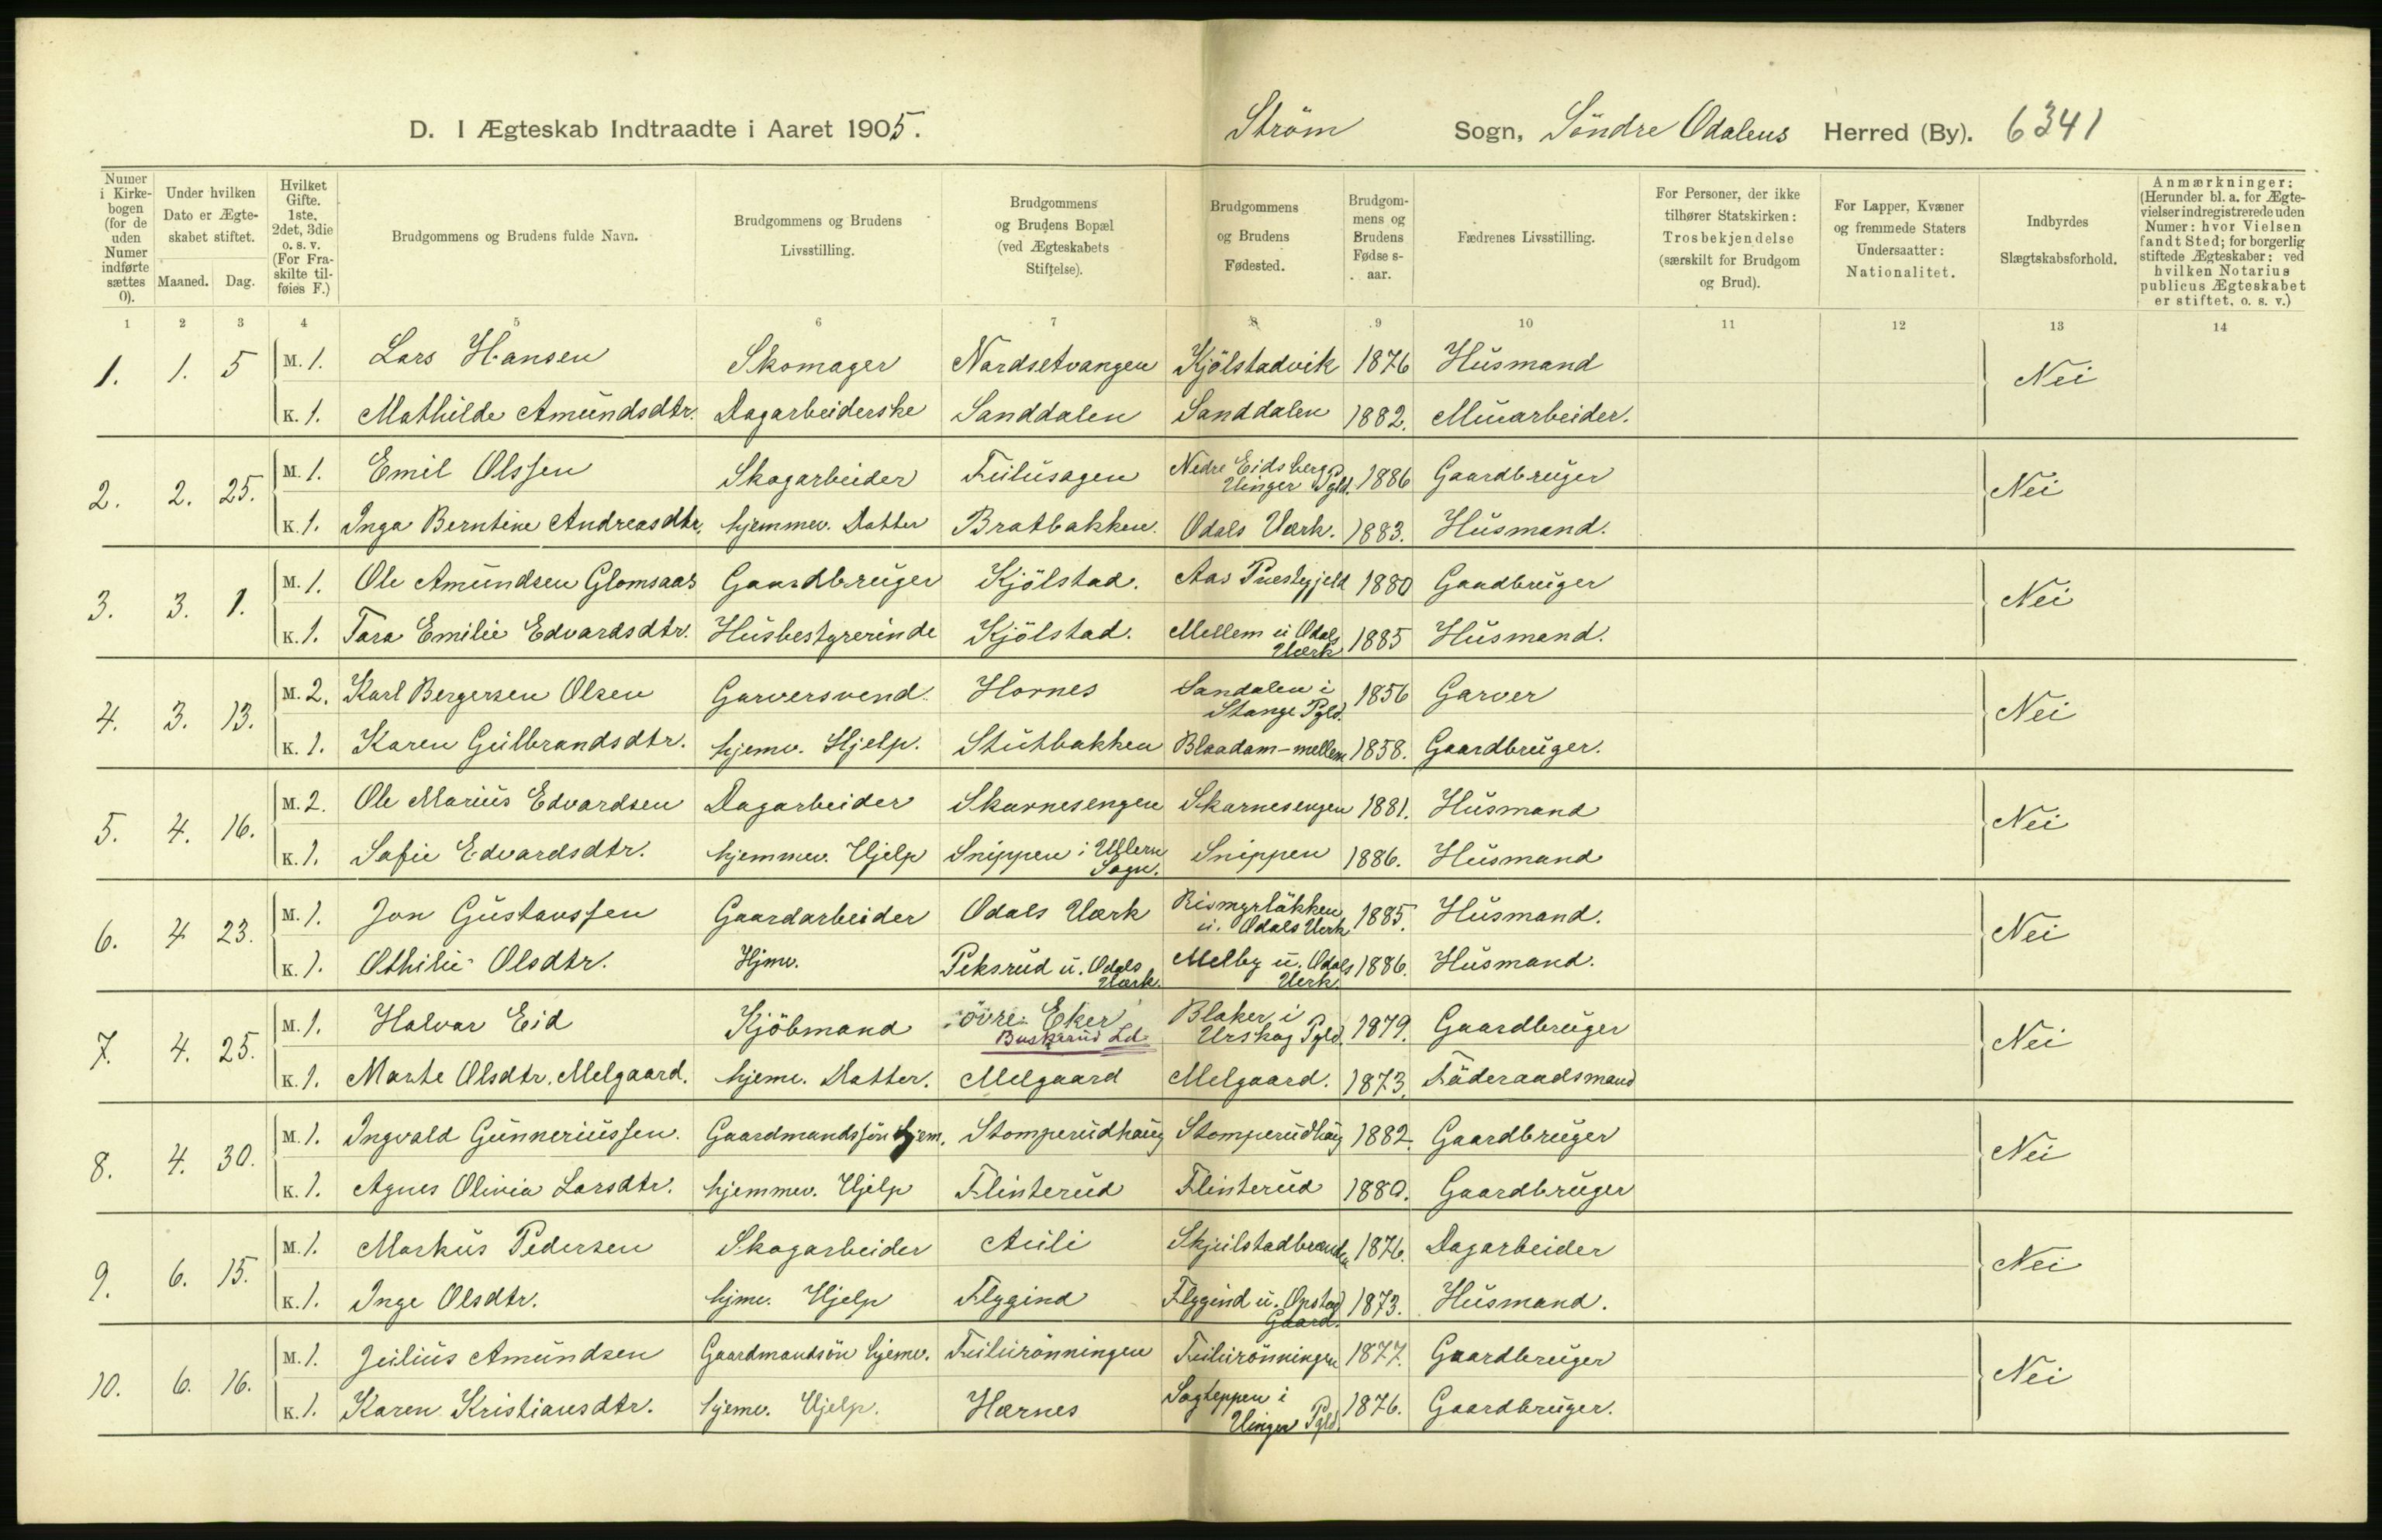 D. I Ægteskab Indtraadte i Aaret 1905. Ström Sogn, Söndre Odalens Herred (By). 6341
Numer i Kirkebogen (for de uden Numer indførte sættes 0). Under hvilken Dato er Ægteskabet stiftet. Maaned. Dag. Hvilket Gifte. 1ste, 2det, 3die o. s. v. (For Fraskilte tilføies F.) Brudgommens og Brudens fulde Navn. Brudgommens og Brudens Livsstilling. Brudgommens og Brudens Bopæl (ved Ægteskabets Stiftelse). Brudgommens og Brudens Fødested. Brudgommens og Brudens Fødselsaar. Fædrenes Livsstilling. For Personer, der ikke tilhører Statskirken: Trosbekjendelse (særskilt for Brudgom og Brud). For Lapper, Kvæner og fremmede Staters Undersaatter: Nationalitet. Indbyrdes Slægtskabsforhold. Anmærkninger: (Herunder bl. a. for Ægtevielser indregistrerede uden Numer: hvor Vielsen fandt Sted; for borgerlig stiftede Ægteskaber: ved hvilken Notarius publicus Ægteskabet er stiftet. o. s. v.)
1 2 3 4 5 6 7 8 9 10 11 12 13 14
1. 1. 5 M. 1. Lars Hansen Skomager Nordsetvangen Kjölstadvik 1876 Husmand Nei
K. 1. Mathilde Amundsdtr. Dagarbeiderske Sanddalen Sanddalen 1882. Muarbeider.
2. 2. 25. M. 1. Emil Olssen Skogarbeider Fulusagen Nedre Eidsberg Vinger Pgld. 1886 Gaardbruger Nei
K. 1. Inga Berntine Andreasdtr. hjemmev. Datter Bratbakken. Odals Værk. 1883. Husmand.
3. 3. 1. M. 1. Ole Amundsen Glomsaas Gaardbruger Kjölstad. Aas Prestegjeld 1880 Gaardbruger Nei
K. 1. Tara Emilie Edvardsdtr. Husbestyrerinde Kjölstad. Mellem u Odals Værk 1885 Husmand.
4. 3. 13. M. 2. Karl Bergersen Olsen Garversvend Hornes Sandalen i Stange Pgld. 1856 Garver Nei
K. 1. Karen Gulbrandsdtr. hjemv. Hjelp. Stutbakken Blaadam-mellem 1858. Gaardbruger.
5. 4. 16. M. 2. Ole Marius Edvardsen Dagarbeider Skarnesengen Skarnesengen 1881. Husmand Nei
K. 1. Safie Edvardsdtr. hjemmev. Hjelp Snippen i Ullern Sogn. Snippen 1886. Husmand
6. 4 23. M. 1. Jon Gustavssen Gaardarbeider Odals Værk Rismyrläkken u. Odals Verk 1885. Husmand. Nei
K. 1. Othilie Olsdtr. Hjmv. Peksrud u. Odals Værk. Melby u. Odals Verk. 1886. Husmand.
7. 4. 25. M. 1. Halvar Eid Kjöbmand övre Eker Buskerud Ld Blaker i Urskog Pgld. 1879. Gaardbruger Nei
K. 1. Marte Olsdtr. Melgaard. hjemv. Datter. Melgaard Melgaard. 1873. Föderaadsmand
8. 4. 30. M. 1. Ingvald Gunneriussen. Gaardmandssön hjem. Stomperudhaug Stomperudhaug 1882. Gaardbruger Nei
K. 1. Agnes Olivia Larsdtr. hjemmev. Hjelp Flinterud Flinterud 1880. Gaardbruger
9. 6. 15. M. 1. Markus Pedersen Skogarbeider Auli Skjulstadbranden 1876. Dagarbeider Nei
K. 1. Inge Olsdtr. hjmv. Hjelp Flygind Flygind u. Opstad Gaard. 1873. Husmand.
10. 6. 16. M. 1. Julius Amundsen Gaardmandsön hjemv. Fulurönningen Fulurönningen 1877. Gaardbruger Nei
K. 1. Karen Kristiansdtr. hjemv. Hjelp. Hernes Sagteppen i Vinger Pgld. 1876. Gaardbruger.